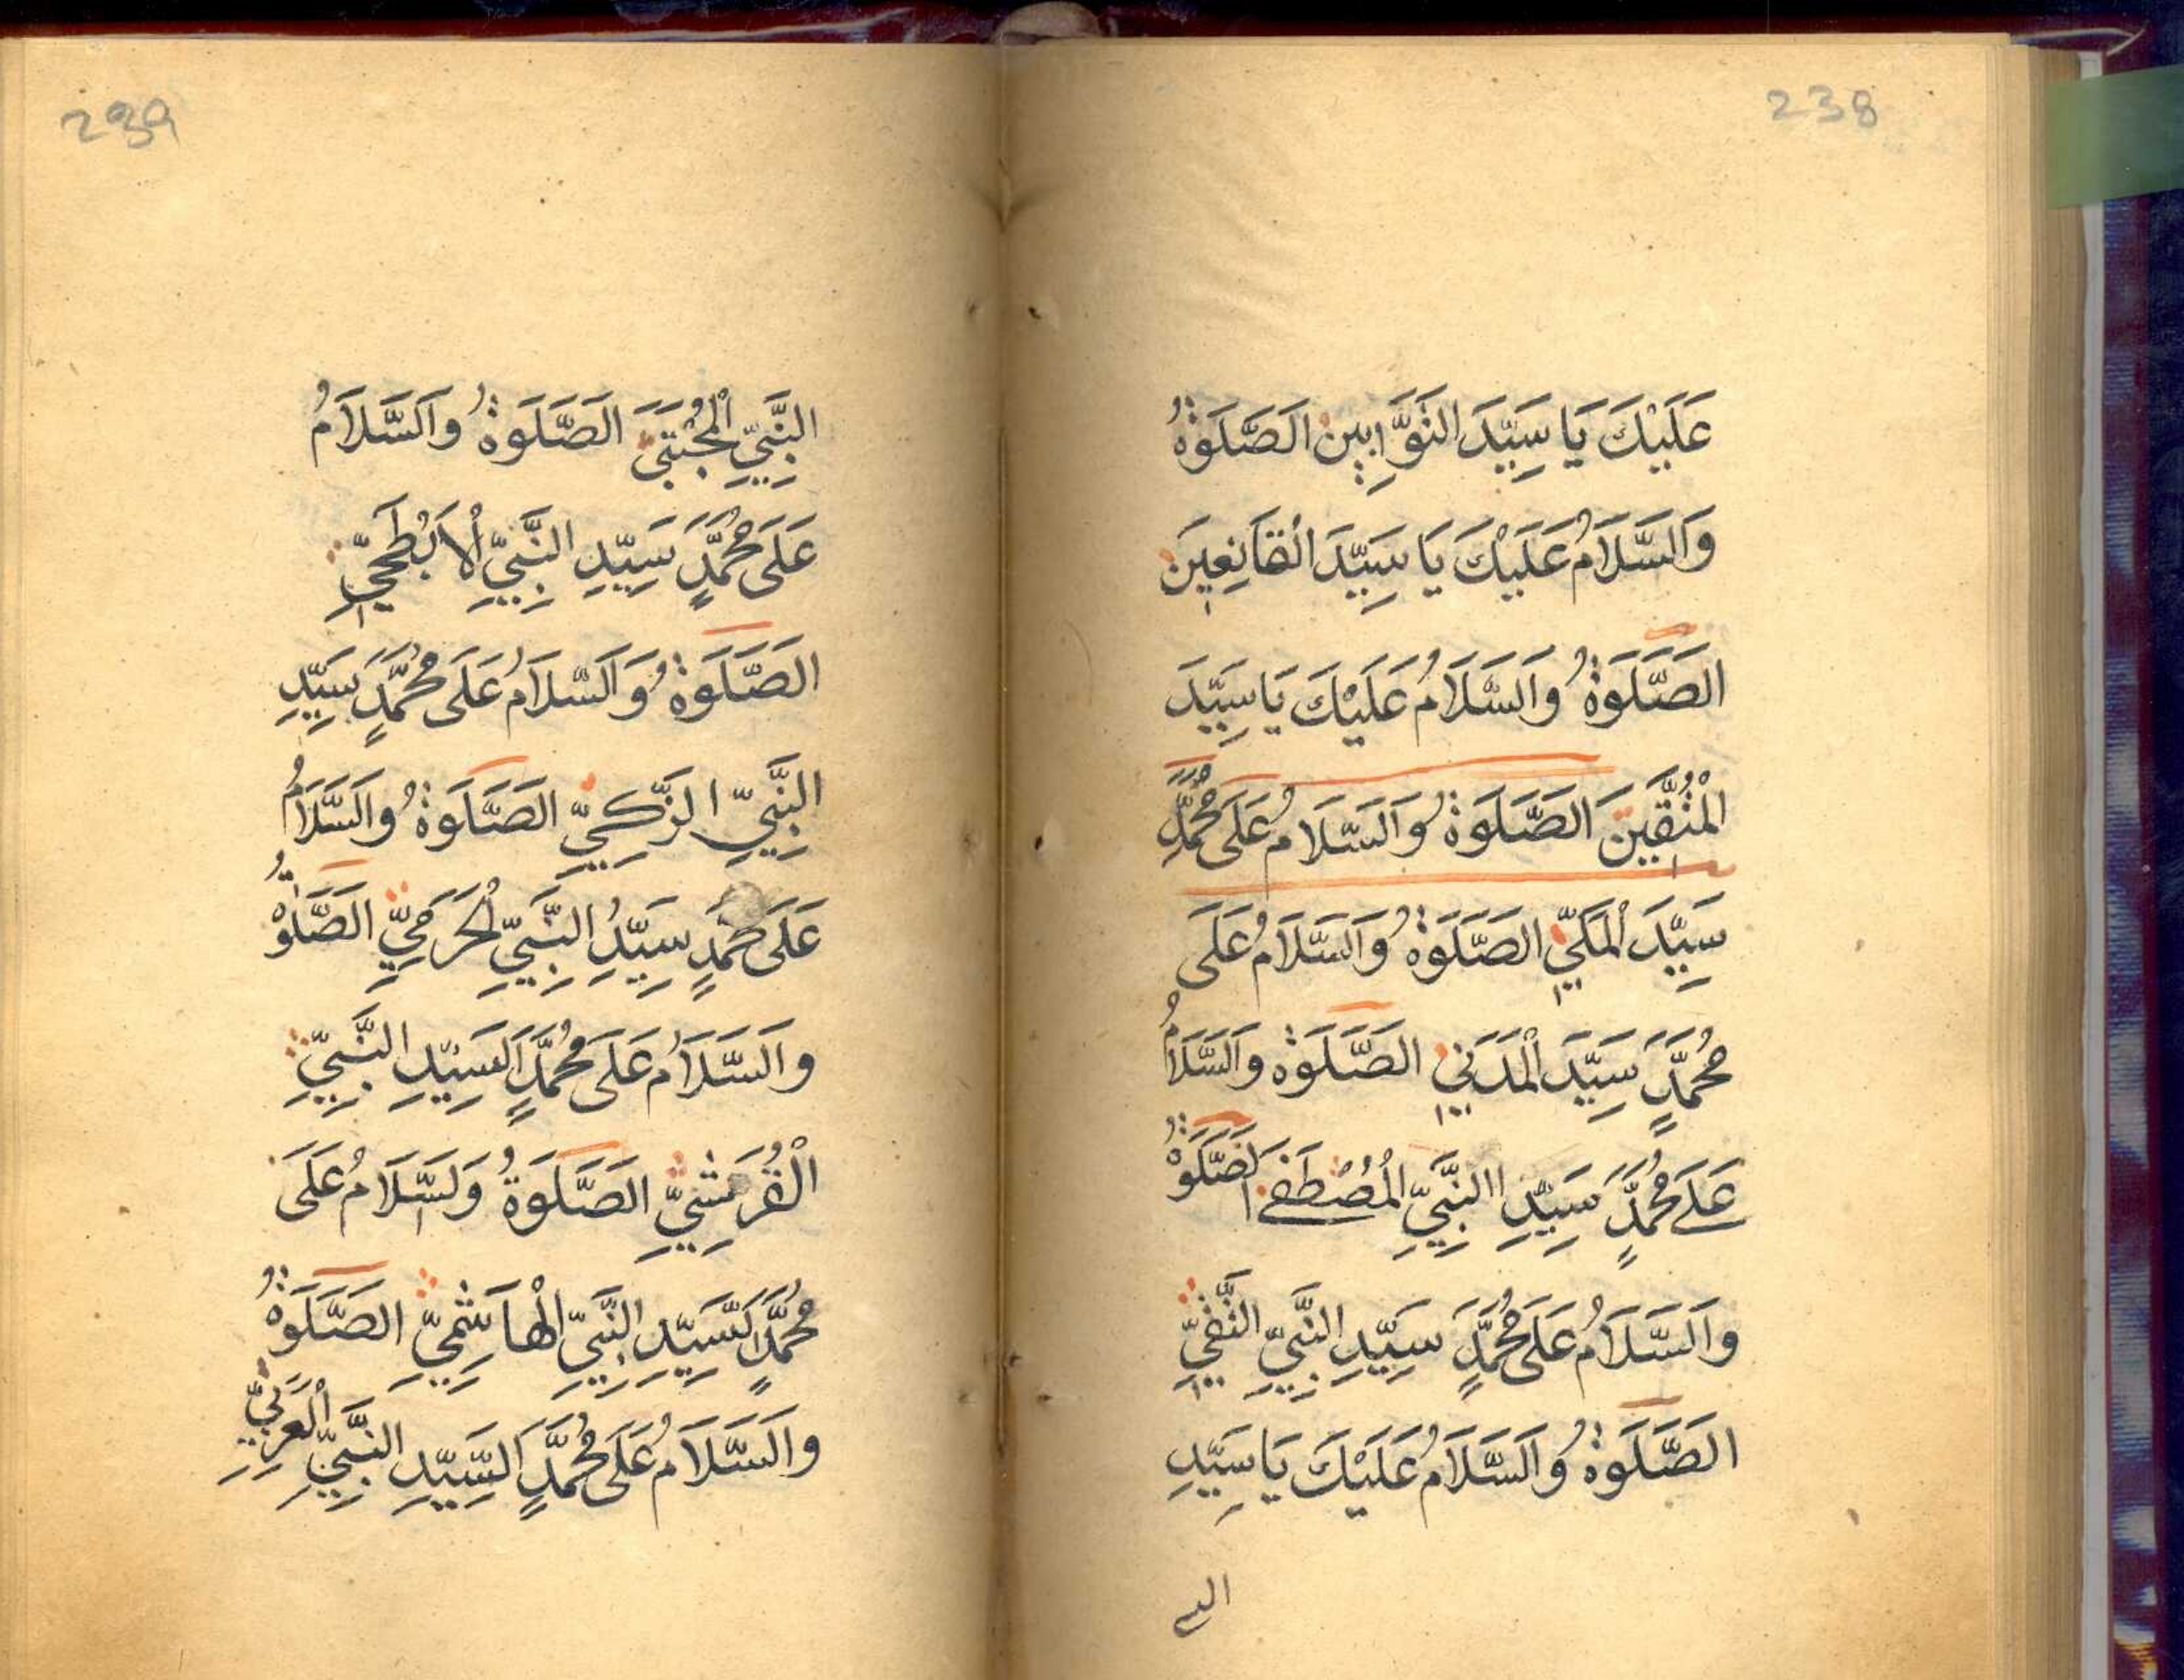 238
عَلَيْكَ يَا سَيِّدَ التَوَّابِينَ الَصَّلَوةُ
وَالسَّلَامُ عَلَيْكَ يَا سَيِّدَ الْقَانِعِينَ
الصَّلَوةُ وَالسَّلَامُ عَلَيْكَ يَا سَيِّدَ
الْمُتَّقِينَ الصَّلَوةُ وَالسَّلَامُ عَلَى مُحَمَّدٍ
سَيِّدَ الْمَكِّيِّ الصَّلَوةُ وَالسَّلَامُ عَلَى
مُحَمَّدٍ سَيِّدَ الْمَدَنِيِ الصَّلَوة وَالسَّلَامُ
عَلَے مُحَمَّدٍ سَيِّدِ االنَّبِيِّ الْمُصْطَفٰے الَصَّلَوةُ
والسَّلَامُ عَلَى مُحَمَّدٍ سَيِّدِ النَّبِيِّ التَّقِيِّ
الصَّلَوةُ وَالسَّلَامُ عَلَيْكَ يَا سَيِّدِ
239
النَّبِيِّ الْمُجْتَبَيَ الَصَّلَوةُ وَالسَّلَامُ
عَلَى مُحَمَّدٍ سَيِّدِ النَّبِيِّ الْاَبْطَحِيِّ
الصَّلَوةُ وَالسَّلَامُ عَلَى مُحَمَّدٍ سَيِّدِ
النَّبِيِّ الزَّكِيِّ الصَّلَوةُ وَالسَّلَامُ
عَلَى مُحَمَدٍ سَيِّدُِ النَّبِيِّ الْحَرَمِيِّ الصَّلَوةُ
والسَّلَامُ عَلَى مُحَمَّدٍ السَيِّدِ النَّبِيِّ
الْقُرَشِيِّ الصَّلَوةُ وَلسَّلَامُ عَلَى
مُحَمَّدٍ السَّيِّدِ النَّبِيِّ الْهَاشِمِيِّ الصَّلَوةُ
والسَّلَامُ عَلَى مُحَمَّدٍ السَّيِّدِ النَّبِيِّ الْعَرَبِيِّ